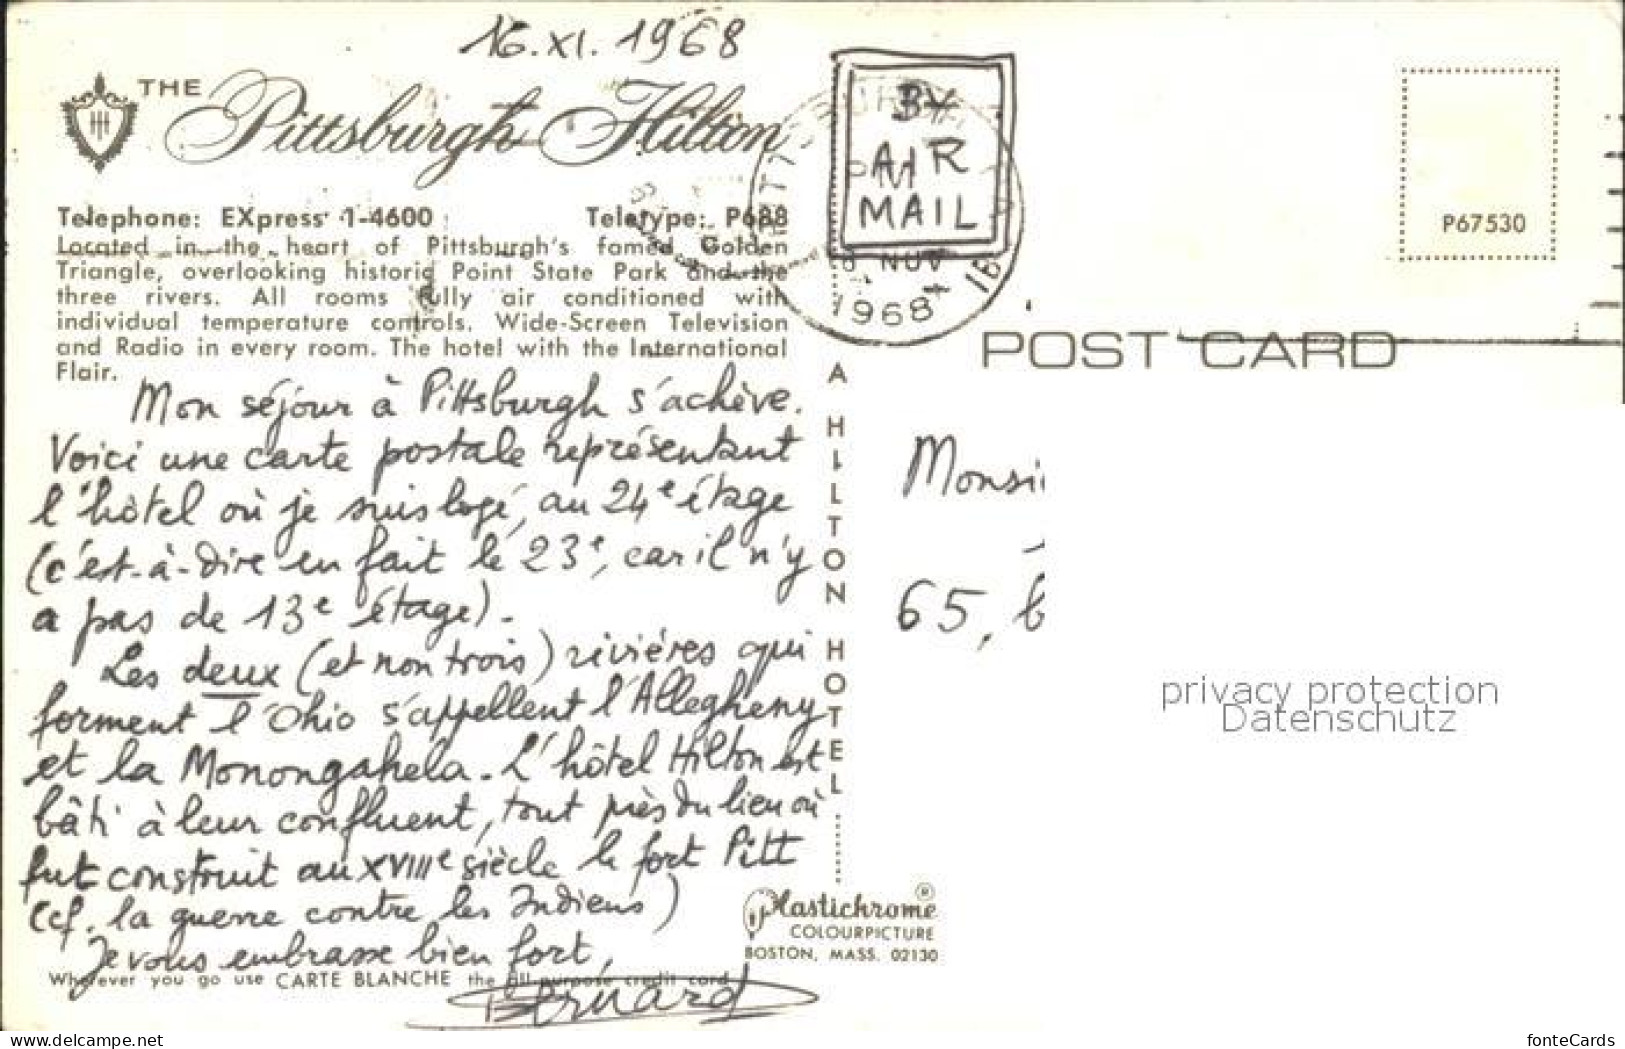 16.XI.1968
THE
Pittsburgh Hilton
Telephone: EXpress 1-4600 Teletype: P688
Located in the heart of Pittsburgh's famed Golden
Triangle, overlooking historic Point State Park and the
three rivers. All rooms fully air conditioned with
individual temperature controls. Wide-Screen Television
and Radio in every room. The hotel with the International
Flair.
Mon séjour à Pittsburgh s'achève.
Voici une carte postale représentant
l'hôtel où je suis logé, au 24e étage
(c'est-à-dire en fait le 23e, car il n'y
a pas de 13e étage).
Les deux (et non trois) rivières qui
forment l'Ohio s'appellent l'Allegheny
et la Monongahela. L'hôtel Hilton est
bâti à leur confluent, tout près du lieu où
fut construit au XVIIIe siècle le fort Pitt
(cf. la guerre contre les Indiens)
Je vous embrasse bien fort,
Wherever you go use CARTE BLANCHE the all-purpose credit card
Bernard
A HILTON HOTEL
BY
AIR
MAIL
PM
NOV
1968
P67530
POST CARD
Monsi
65, b
privacy protection
Datenschutz
Plastichrome®
COLOURPICTURE
BOSTON, MASS. 02130
www.delcampe.net
fonteCards